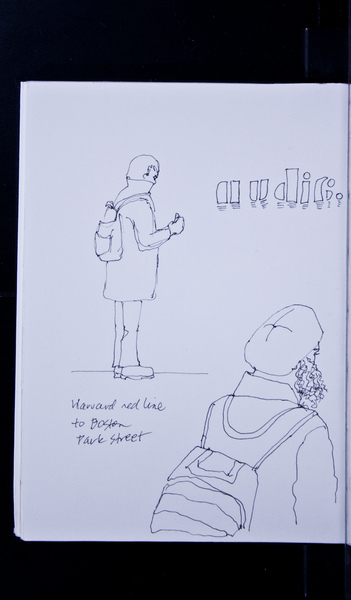 Harvard red line
to Boston
Park Street